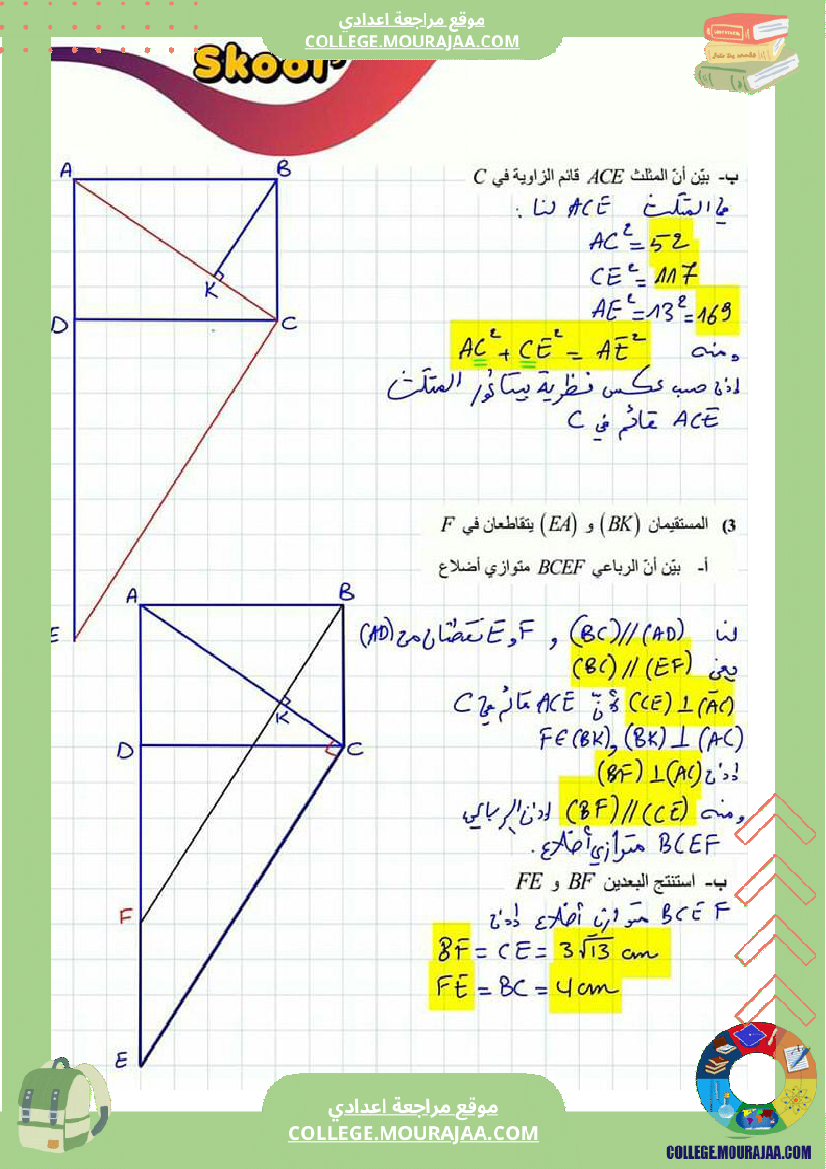 موقع مراجعة اعدادي
COLLEGE.MOURAJAA.COM
Skool
ب- بيّن أنّ المثلث ACE قائم الزاوية في C
في المثلث ACE لنا :
AC² = 52
CE² = 117
AE² = 13² = 169
ومنه AC² + CE² = AE²
إذن حسب عكس نظرية بيتاغور المثلث
ACE قائم في C
A
B
K
D
C
E
3) المستقيمان (BK) و (EA) يتقاطعان في F
أ- بيّن أنّ الرباعي BCEF متوازي أضلاع
لنا (BC)//(AD) و F و E نقطتان من (AD)
يعني (BC)//(EF)
(CE)⊥(AC) لأنّ ACE قائم في C
F∈(BK) و (BK)⊥(AC)
إذن (BF)⊥(AC)
ومنه (BF)//(CE) إذن الرباعي
BCEF متوازي أضلاع.
ب- استنتج البعدين BF و FE
BCEF متوازي أضلاع إذن
BF = CE = 3√13 cm
FE = BC = 4 cm
A
B
K
D
C
F
E
موقع مراجعة اعدادي
COLLEGE.MOURAJAA.COM
COLLEGE.MOURAJAA.COM